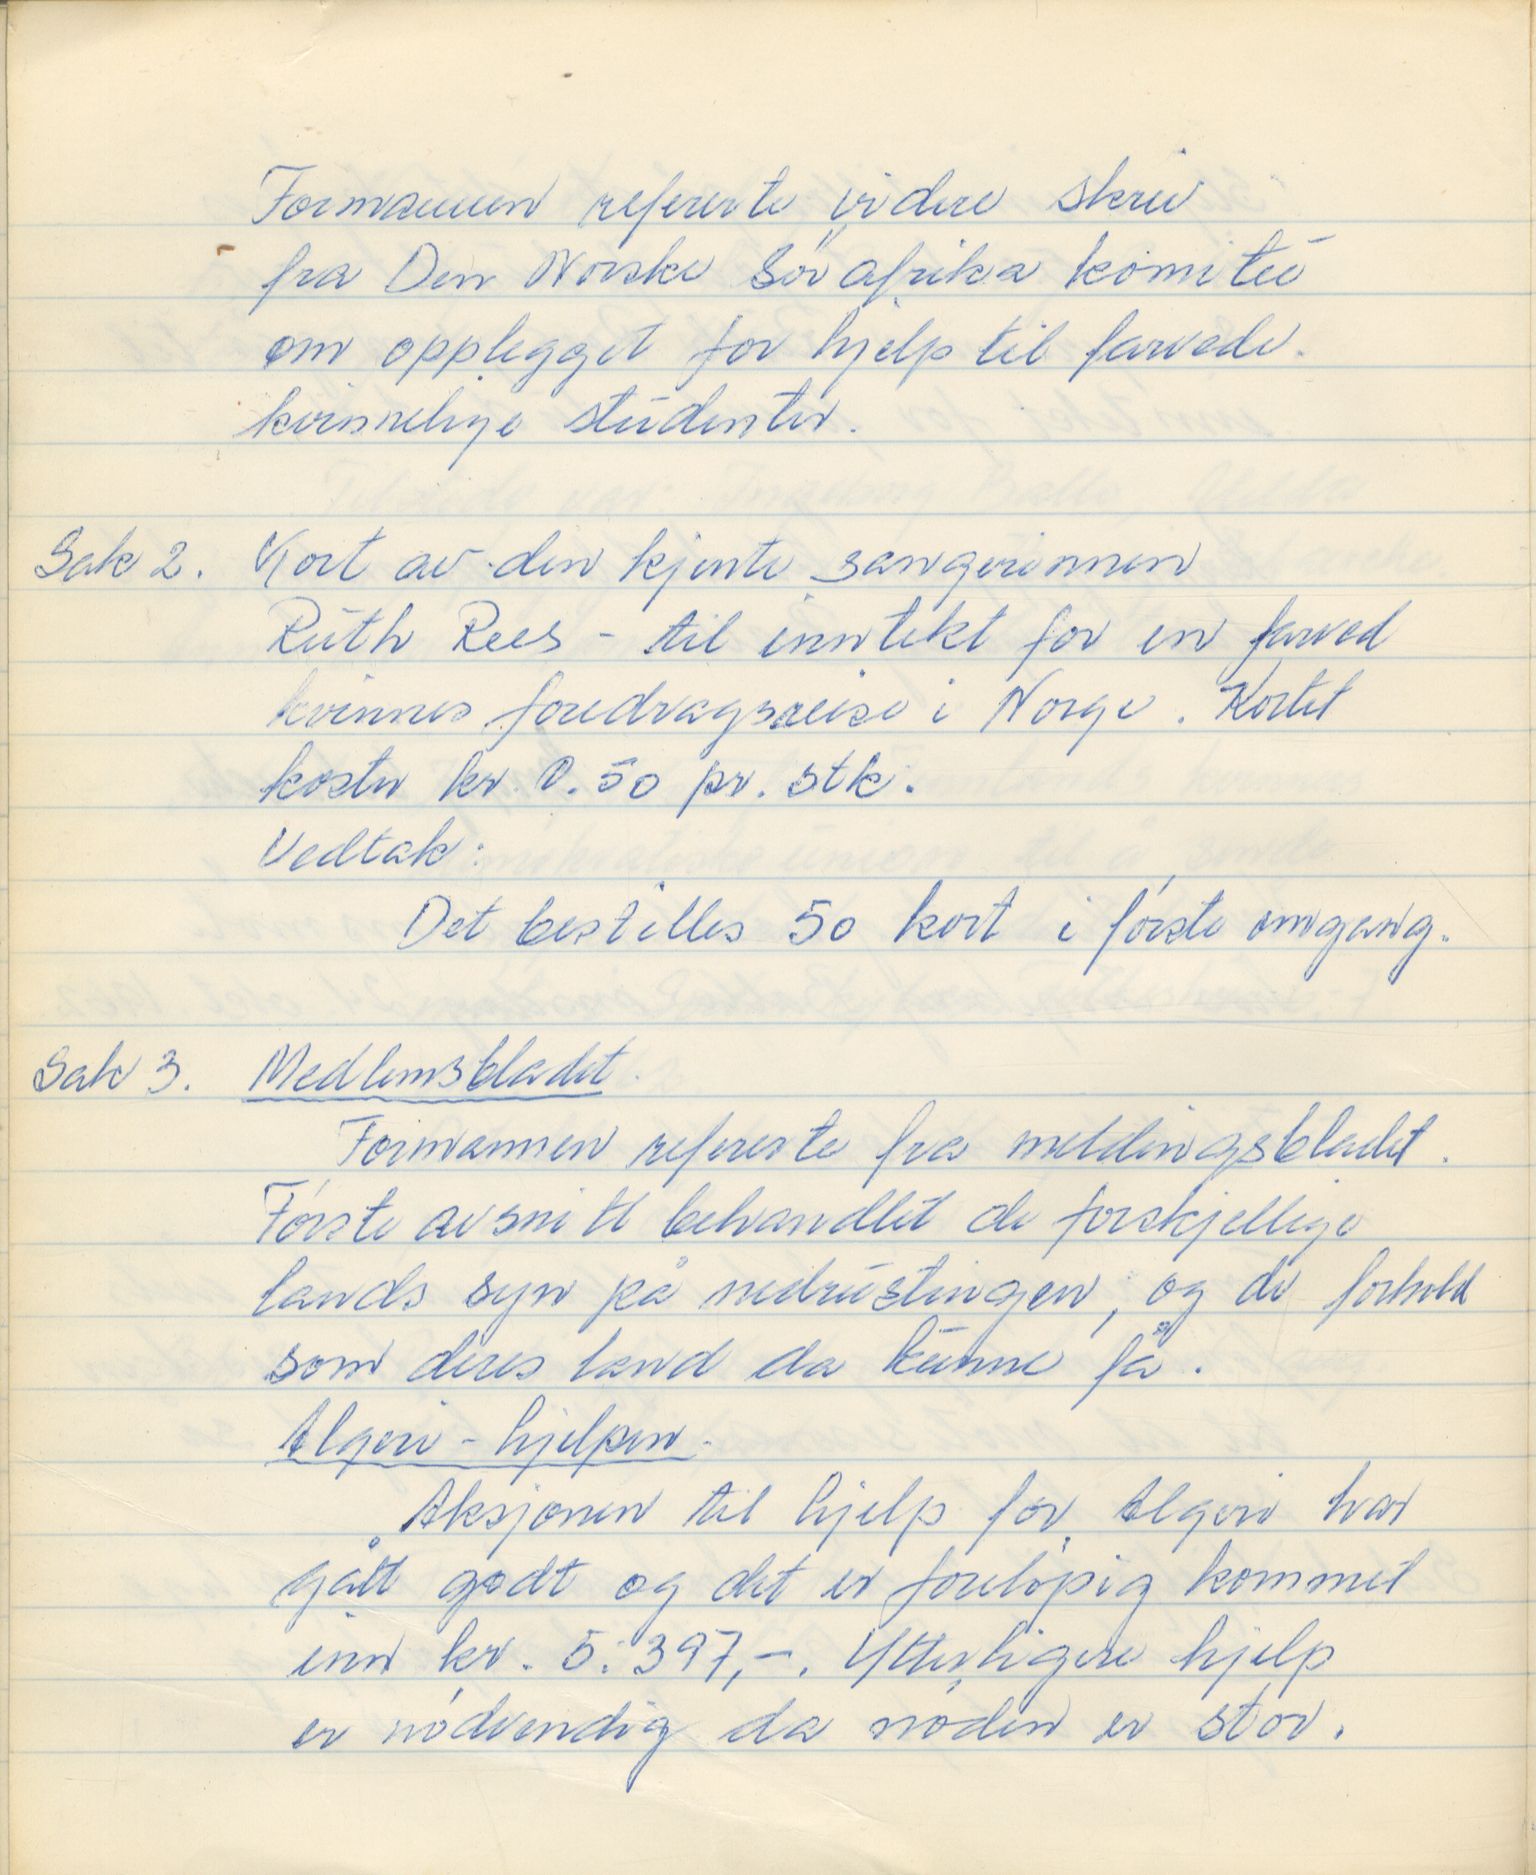 Formannen refererte videre skriv
fra Den Norske Sør afrika komiteé
om opplegget for hjelp til farvede
kvinnelige studenter.
Sak 2. Kort av den kjente sangerinnen
Ruth Rees - til inntekt for en farved
kvinnes foredragsreise i Norge. Kortet
koster kr. 0.50 pr. stk.
Vedtak:
Det bestilles 50 kort i første omgang.
Sak 3. Medlemsbladet.
Formannen refererte fra meldingsbladet.
Første avsnitt behandlet de forskjellige
lands syn på nedrustingen, og de forhold
som deres land da kunne få.
Algeri - hjelpen.
Aksjonen til hjelp for Algeri har
gått godt og det er foreløpig kommet
inn kr. 5.397,-. Ytterligere hjelp
er nødvendig da nøden er stor.